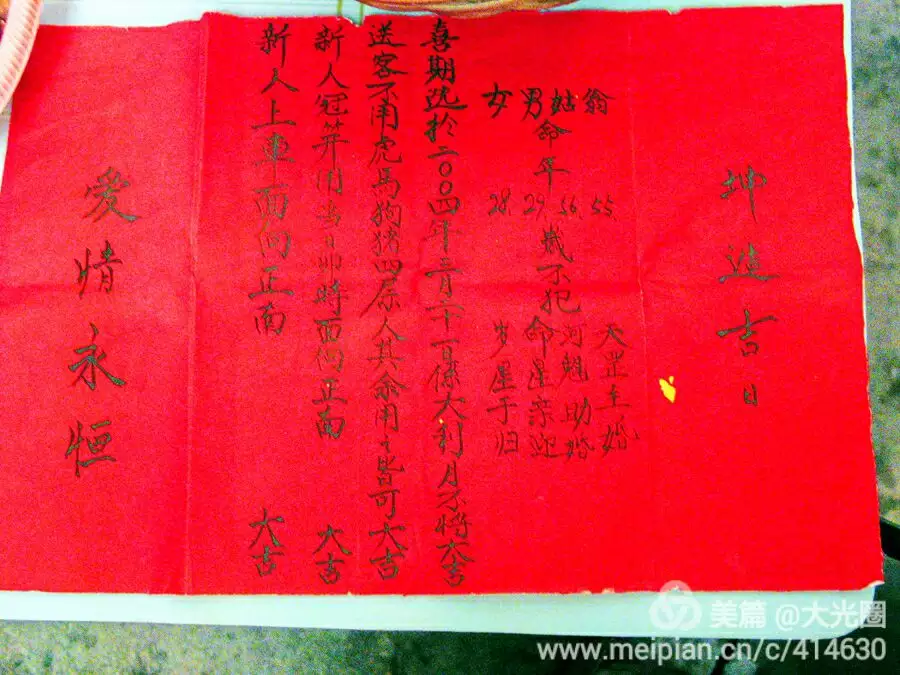 坤造吉日
翁 55 天罡主婚
姑 56 河魁助婚
男命年29歲不犯命星亲迎
女 28 岁星于归
喜期选於二〇〇四年二月二十一日係大利月不将大吉
送客不用虎馬狗猪四屬人其余用之皆可大吉
新人冠笄用当日卯時面向正南 大吉
新人上車面向正南 大吉
愛情永恒
美篇 @大光圈
www.meipian.cn/c/414630